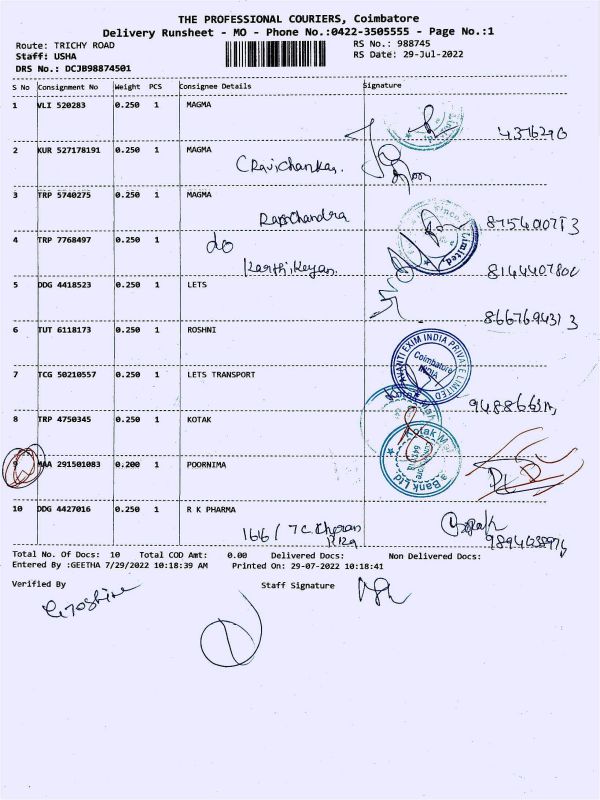 THE PROFESSIONAL COURIERS, Coimbatore
Delivery Runsheet - MO - Phone No.:0422-3505555 - Page No.:1
Route: TRICHY ROAD RS No.: 988745
Staff: USHA RS Date: 29-Jul-2022
DRS No.: DCJB98874501
S No Consignment No Weight PCS Consignee Details Signature
1 VLI 520283 0.250 1 MAGMA
4376290
2 KUR 527178191 0.250 1 MAGMA
3 TRP 5740275 0.250 1 MAGMA
Ramchandra
4 TRP 7768497 0.250 1 do Limited
Karthikeyan 8144407800
5 DDG 4418523 0.250 1 LETS
8667694313
6 TUT 6118173 0.250 1 ROSHNI
AVANTI EXIM INDIA PRIVATE LIMITED
Coimbatore
INDIA
7 TCG 50210557 0.250 1 LETS TRANSPORT
8 TRP 4750345 0.250 1 KOTAK
Kotak Ma
a Bank Ltd
9 MAA 291501083 0.200 1 POORNIMA
10 DDG 4427016 0.250 1 R K PHARMA
166/
Total No. Of Docs: 10 Total COD Amt: 0.00 Delivered Docs: Non Delivered Docs:
Entered By :GEETHA 7/29/2022 10:18:39 AM Printed On: 29-07-2022 10:18:41
Verified By Staff Signature